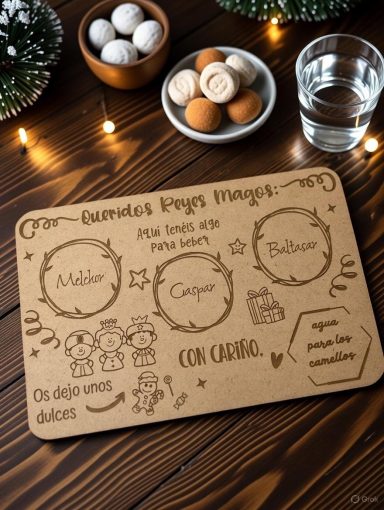 Queridos Reyes Magos:
Aquí tenéis algo
para beber
Melchor
Gaspar
Baltasar
agua
para los
camellos
CON CARIÑO,
Os dejo unos
dulces
Grok